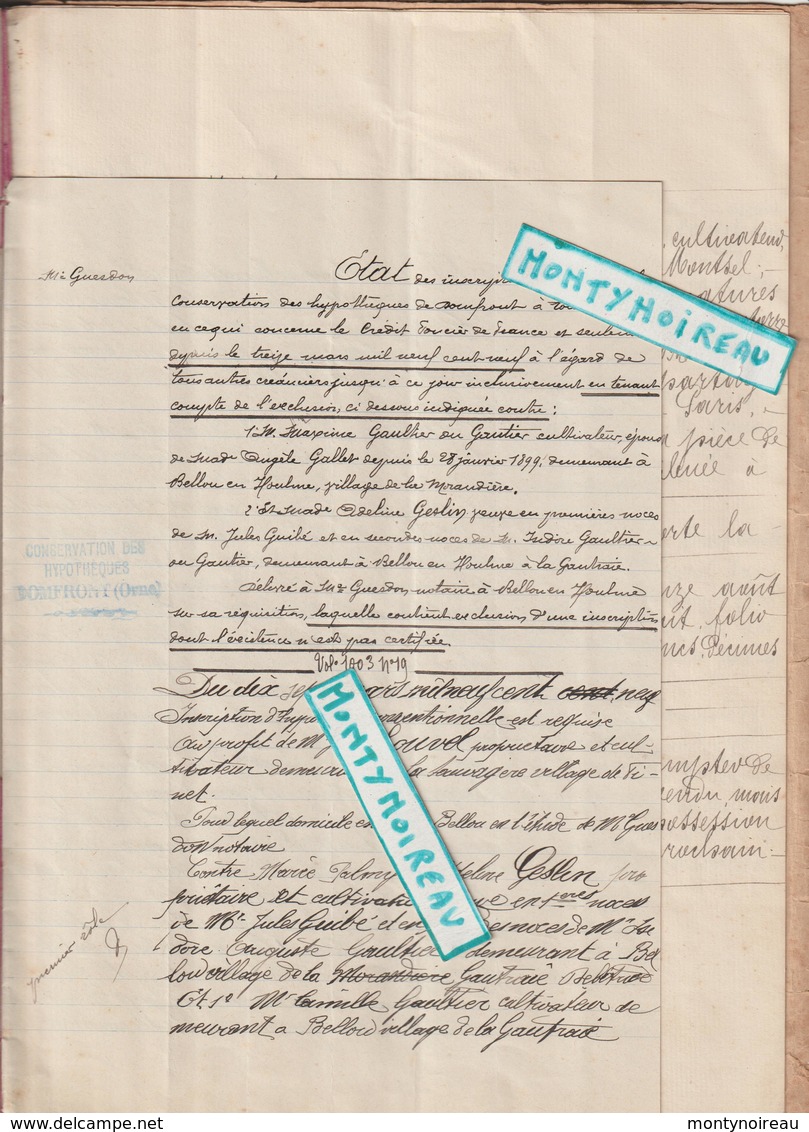 Me Guesdon
Etat des inscrip
Conservation des hypothèques de Domfront à
en ce qui concerne le Crédit Foncier de France et seulem
depuis le treize mars mil neuf cent neuf à l'égard de
tous autres créanciers jusqu'à ce jour inclusivement en tenant
compte de l'exclusion, ci dessous indiquée contre :
1° M. Maxime Gaultier ou Gautier cultivateur, époux
de Made Angèle Gallet depuis le 28 janvier 1899, demeurant à
Bellou en Houlme, village de la Morandière.
2° Et Made Adeline Geslin veuve en premières noces
de M. Jules Guibé et en secondes noces de M. Isidore Gaultier
ou Gautier, demeurant à Bellou en Houlme à la Gautraie.
Délivré à Me Guesdon notaire à Bellou en Houlme
sur sa réquisition, laquelle contient exclusion d'une inscription
dont l'existence n'est pas certifiée.
CONSERVATION DES
HYPOTHÈQUES
DOMFRONT (Orne)
Vol. 1003 N° 19
Du dix sep mil neuf cent cent neuf
Inscription d'hypo conventionnelle est requise
au profit de M Louvel propriétaire et cul-
tivateur demeur la Sauvagère village de Ti-
net.
Pour lequel domicile en Bellou en l'étude de Me Gues
don notaire
Contre Marie Palmy Geslin pro
priétaire et cultivatri en 1ères noces
de Mr Jules Guibé et en des noces de Mr Isi
dore Auguste Gaultier demeurant à Bel
lou village de la Morandière Gautraie
Et 1° Mr Camille Gaultier cultivateur de
meurant à Bellou village de la Gautraie
premier rôle
cultivateur,
Montsel ;
Paris,
pièce de
à
la
août
folio
décimes
de
mois
possession
MONTYNOIREAU
MONTYNOIREAU
montynoireau